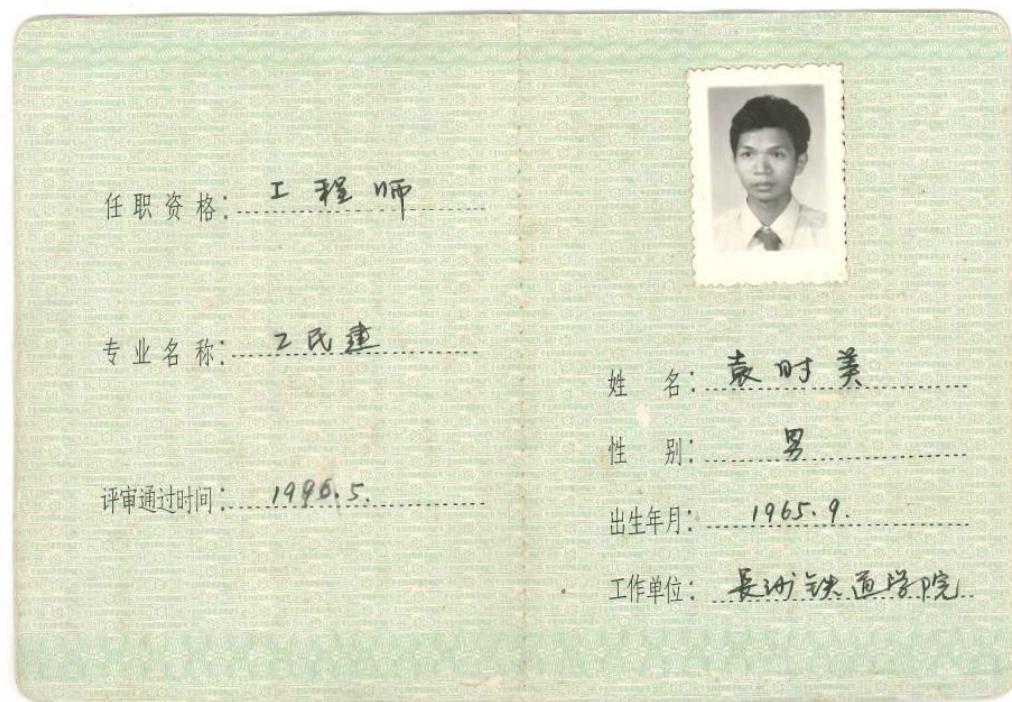 任职资格：工程师
专业名称：工民建
评审通过时间：1996.5.
姓 名：袁时美
性 别：男
出生年月：1965.9.
工作单位：长沙铁道学院